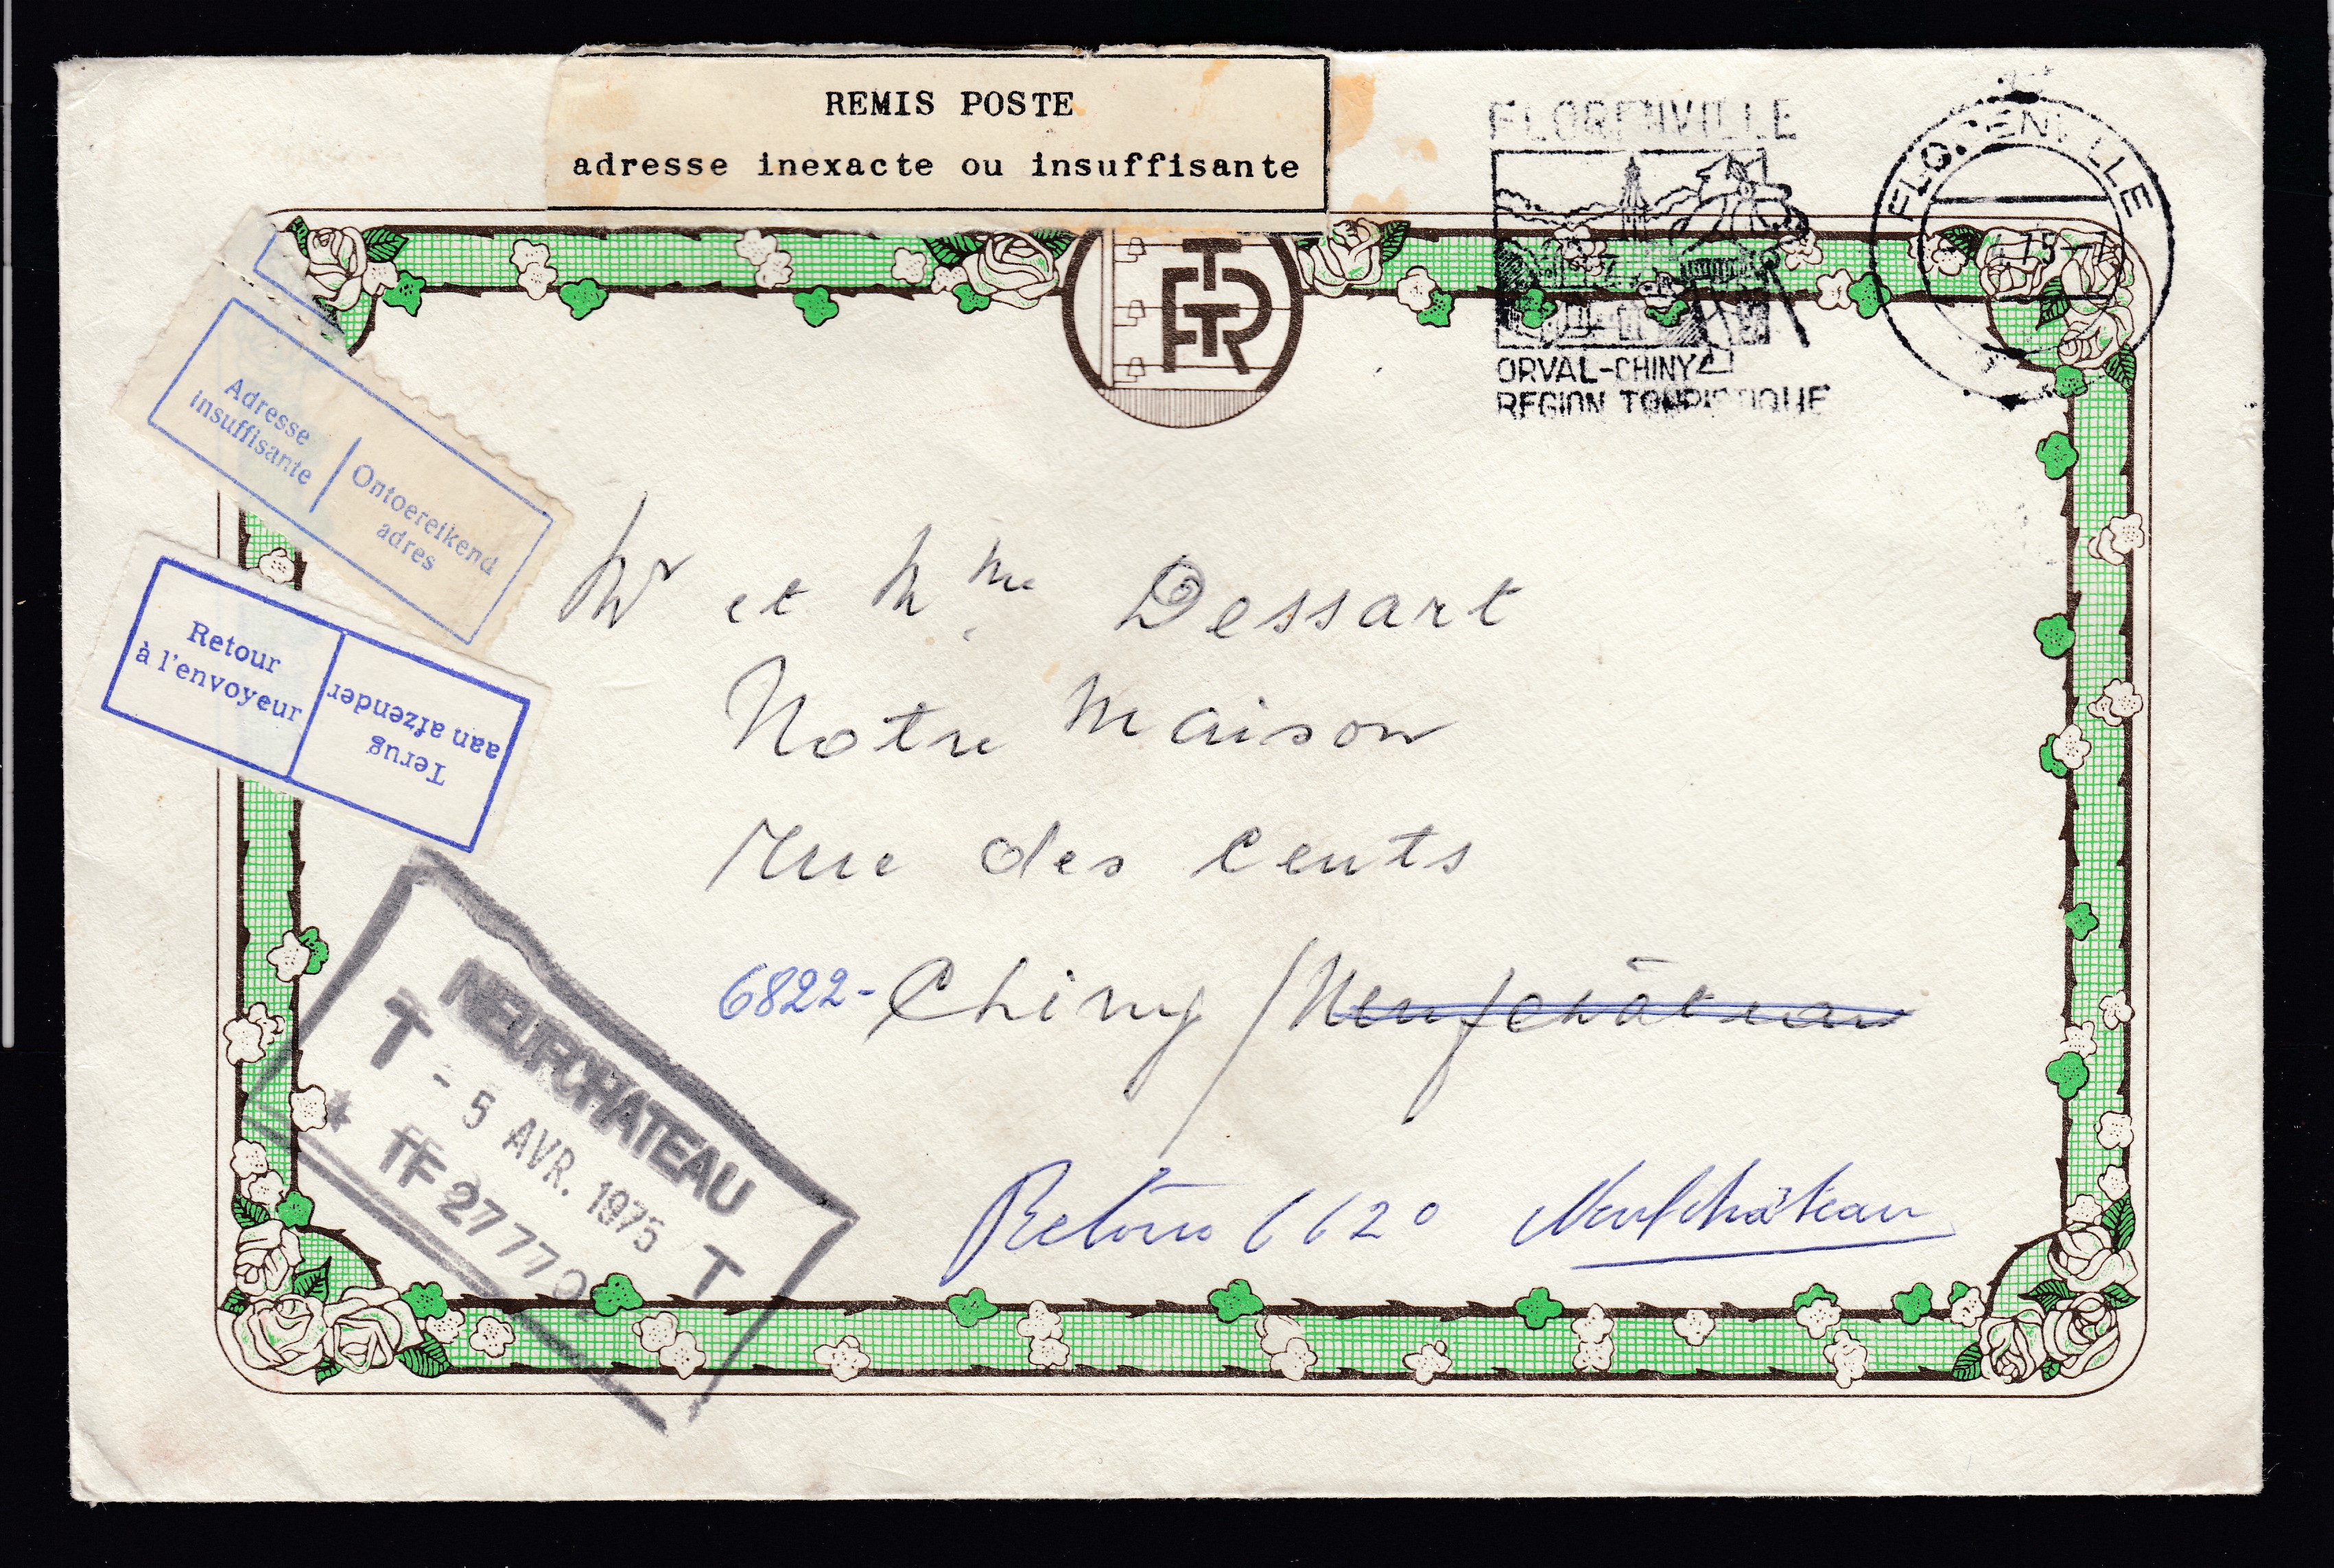 REMIS POSTE
adresse inexacte ou insuffisante
FLORENVILLE
ORVAL-CHINY
REGION TOURISTIQUE
FLORENVILLE
RTT
Adresse
insuffisante
Ontoereikend
adres
Retour
à l'envoyeur
Terug
aan afzender
Mr et Mme Dessart
Notre Maison
rue des Cents
6822- Chiny / Neufchâteau
NEUFCHATEAU
T - 5 AVR. 1975 T
Retour 6620 Neufchâteau